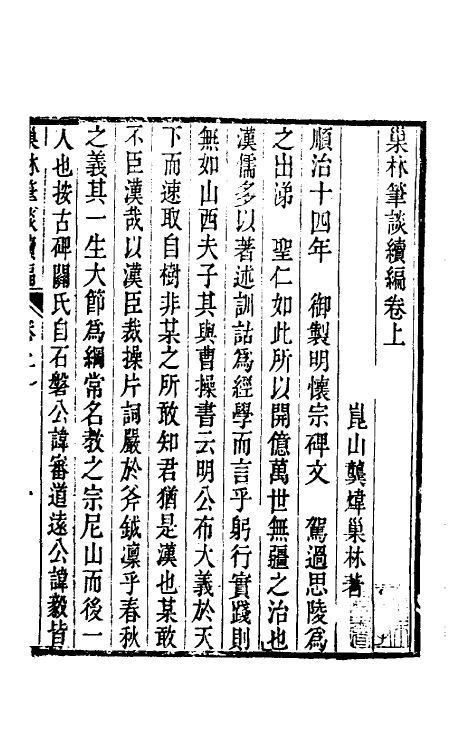 巢林筆談續編卷上
崑山龔煒巢林著
順治十四年　御製明懷宗碑文　駕過思陵爲
之出涕　聖仁如此所以開億萬世無疆之治也
漢儒多以著述訓詁爲經學而言乎躬行實踐則
無如山西夫子其與曹操書云明公布大義於天
下而速取自樹非某之所敢知君猶是漢也某敢
不臣漢哉以漢臣裁操片詞嚴於斧鉞凛乎春秋
之義其一生大節爲綱常名教之宗尼山而後一
人也按古碑關氏自石磐公諱審道遠公諱毅皆
巢林筆談續編
卷上
一